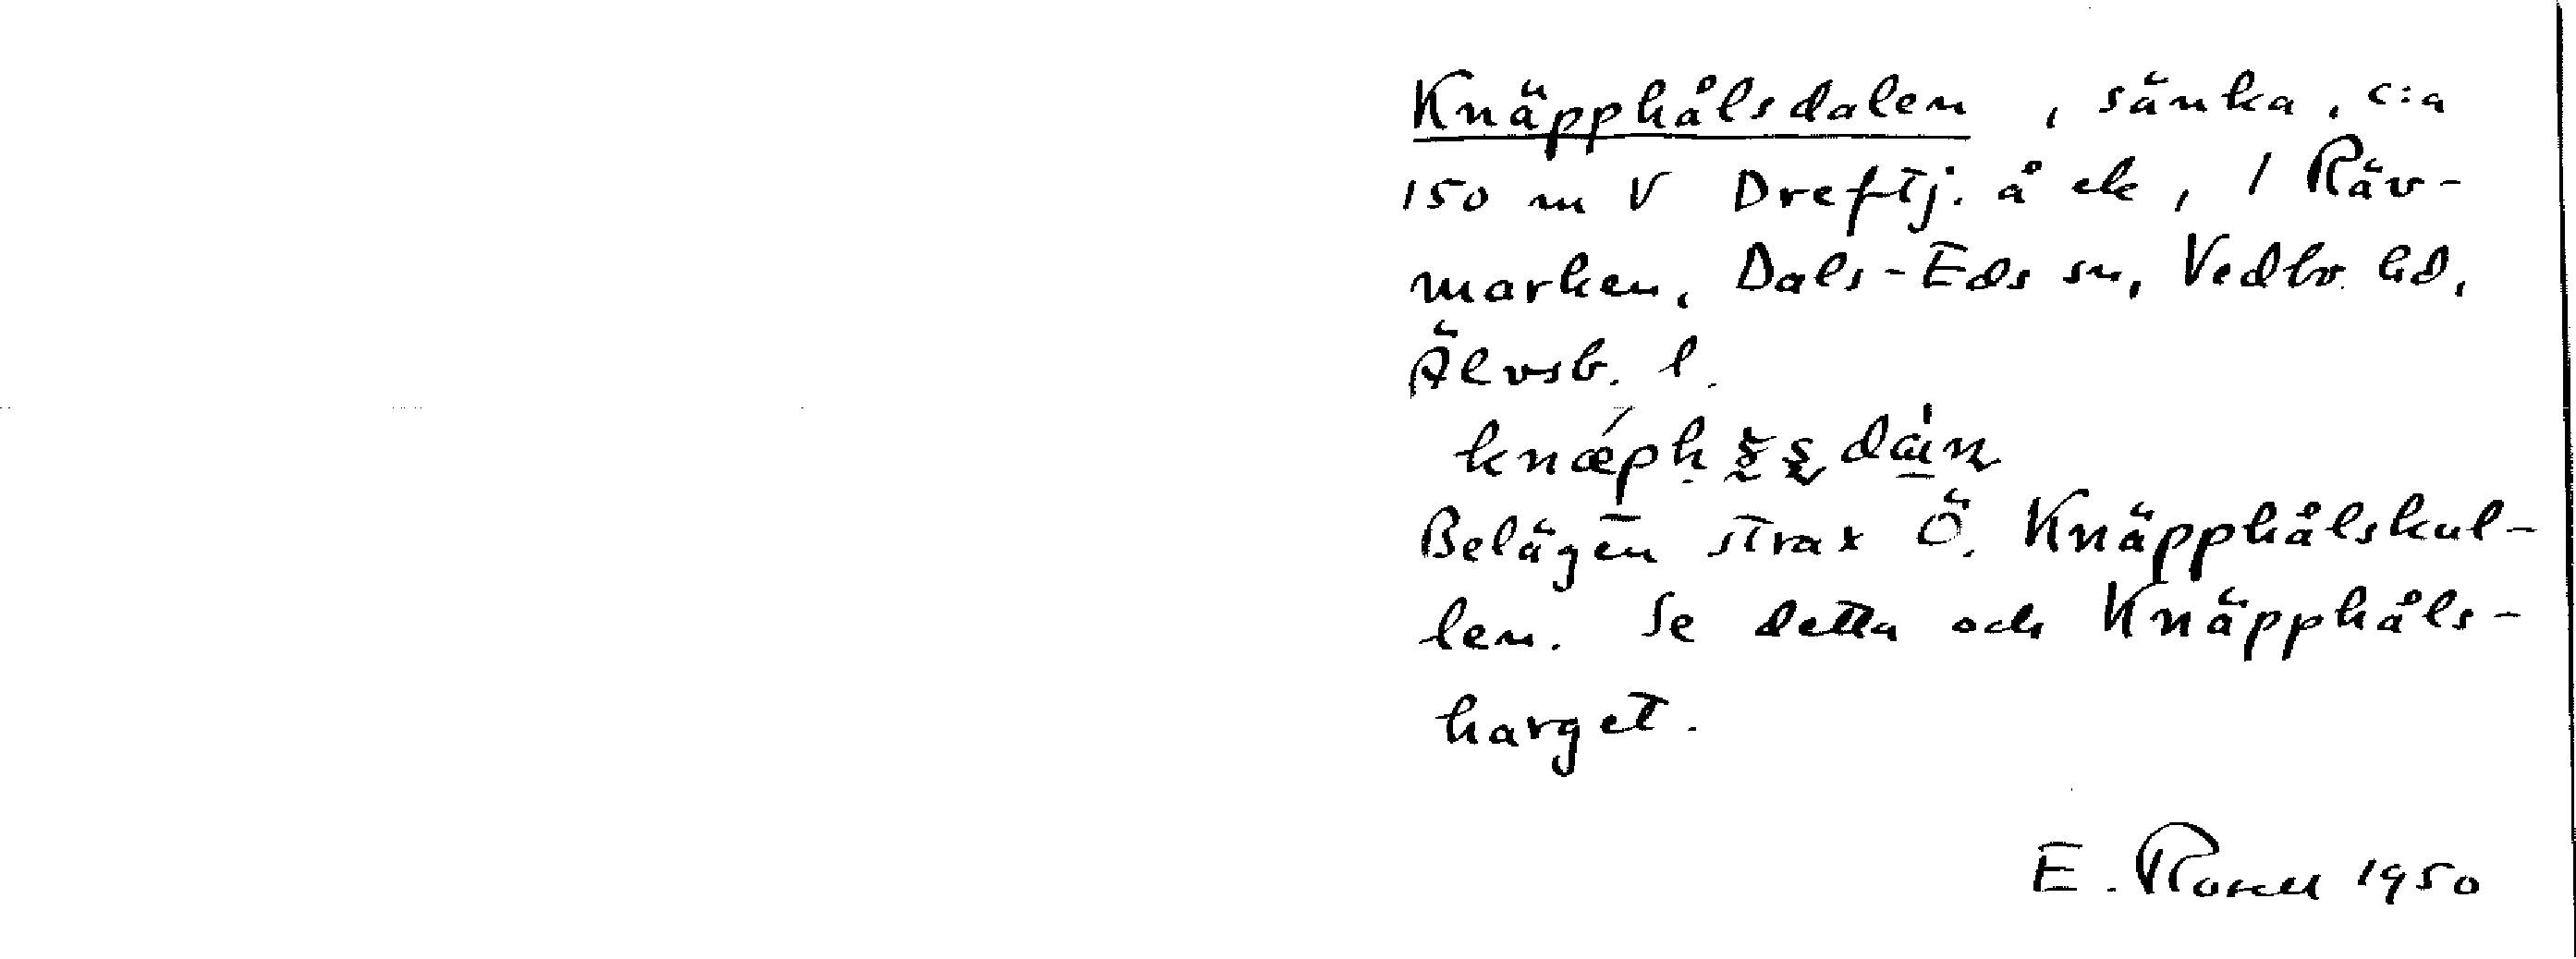 Knäpphålsdalen, sänka, c:a
150 m V Dreftj. å ek, 1 Räv-
marken, Dals-Eds sn, Vedbo hd,
Älvsb. l.
Belägen strax Ö. Knäpphålskul-
len. Se detta och Knäpphåls-
harget.
E. Rosell 1950